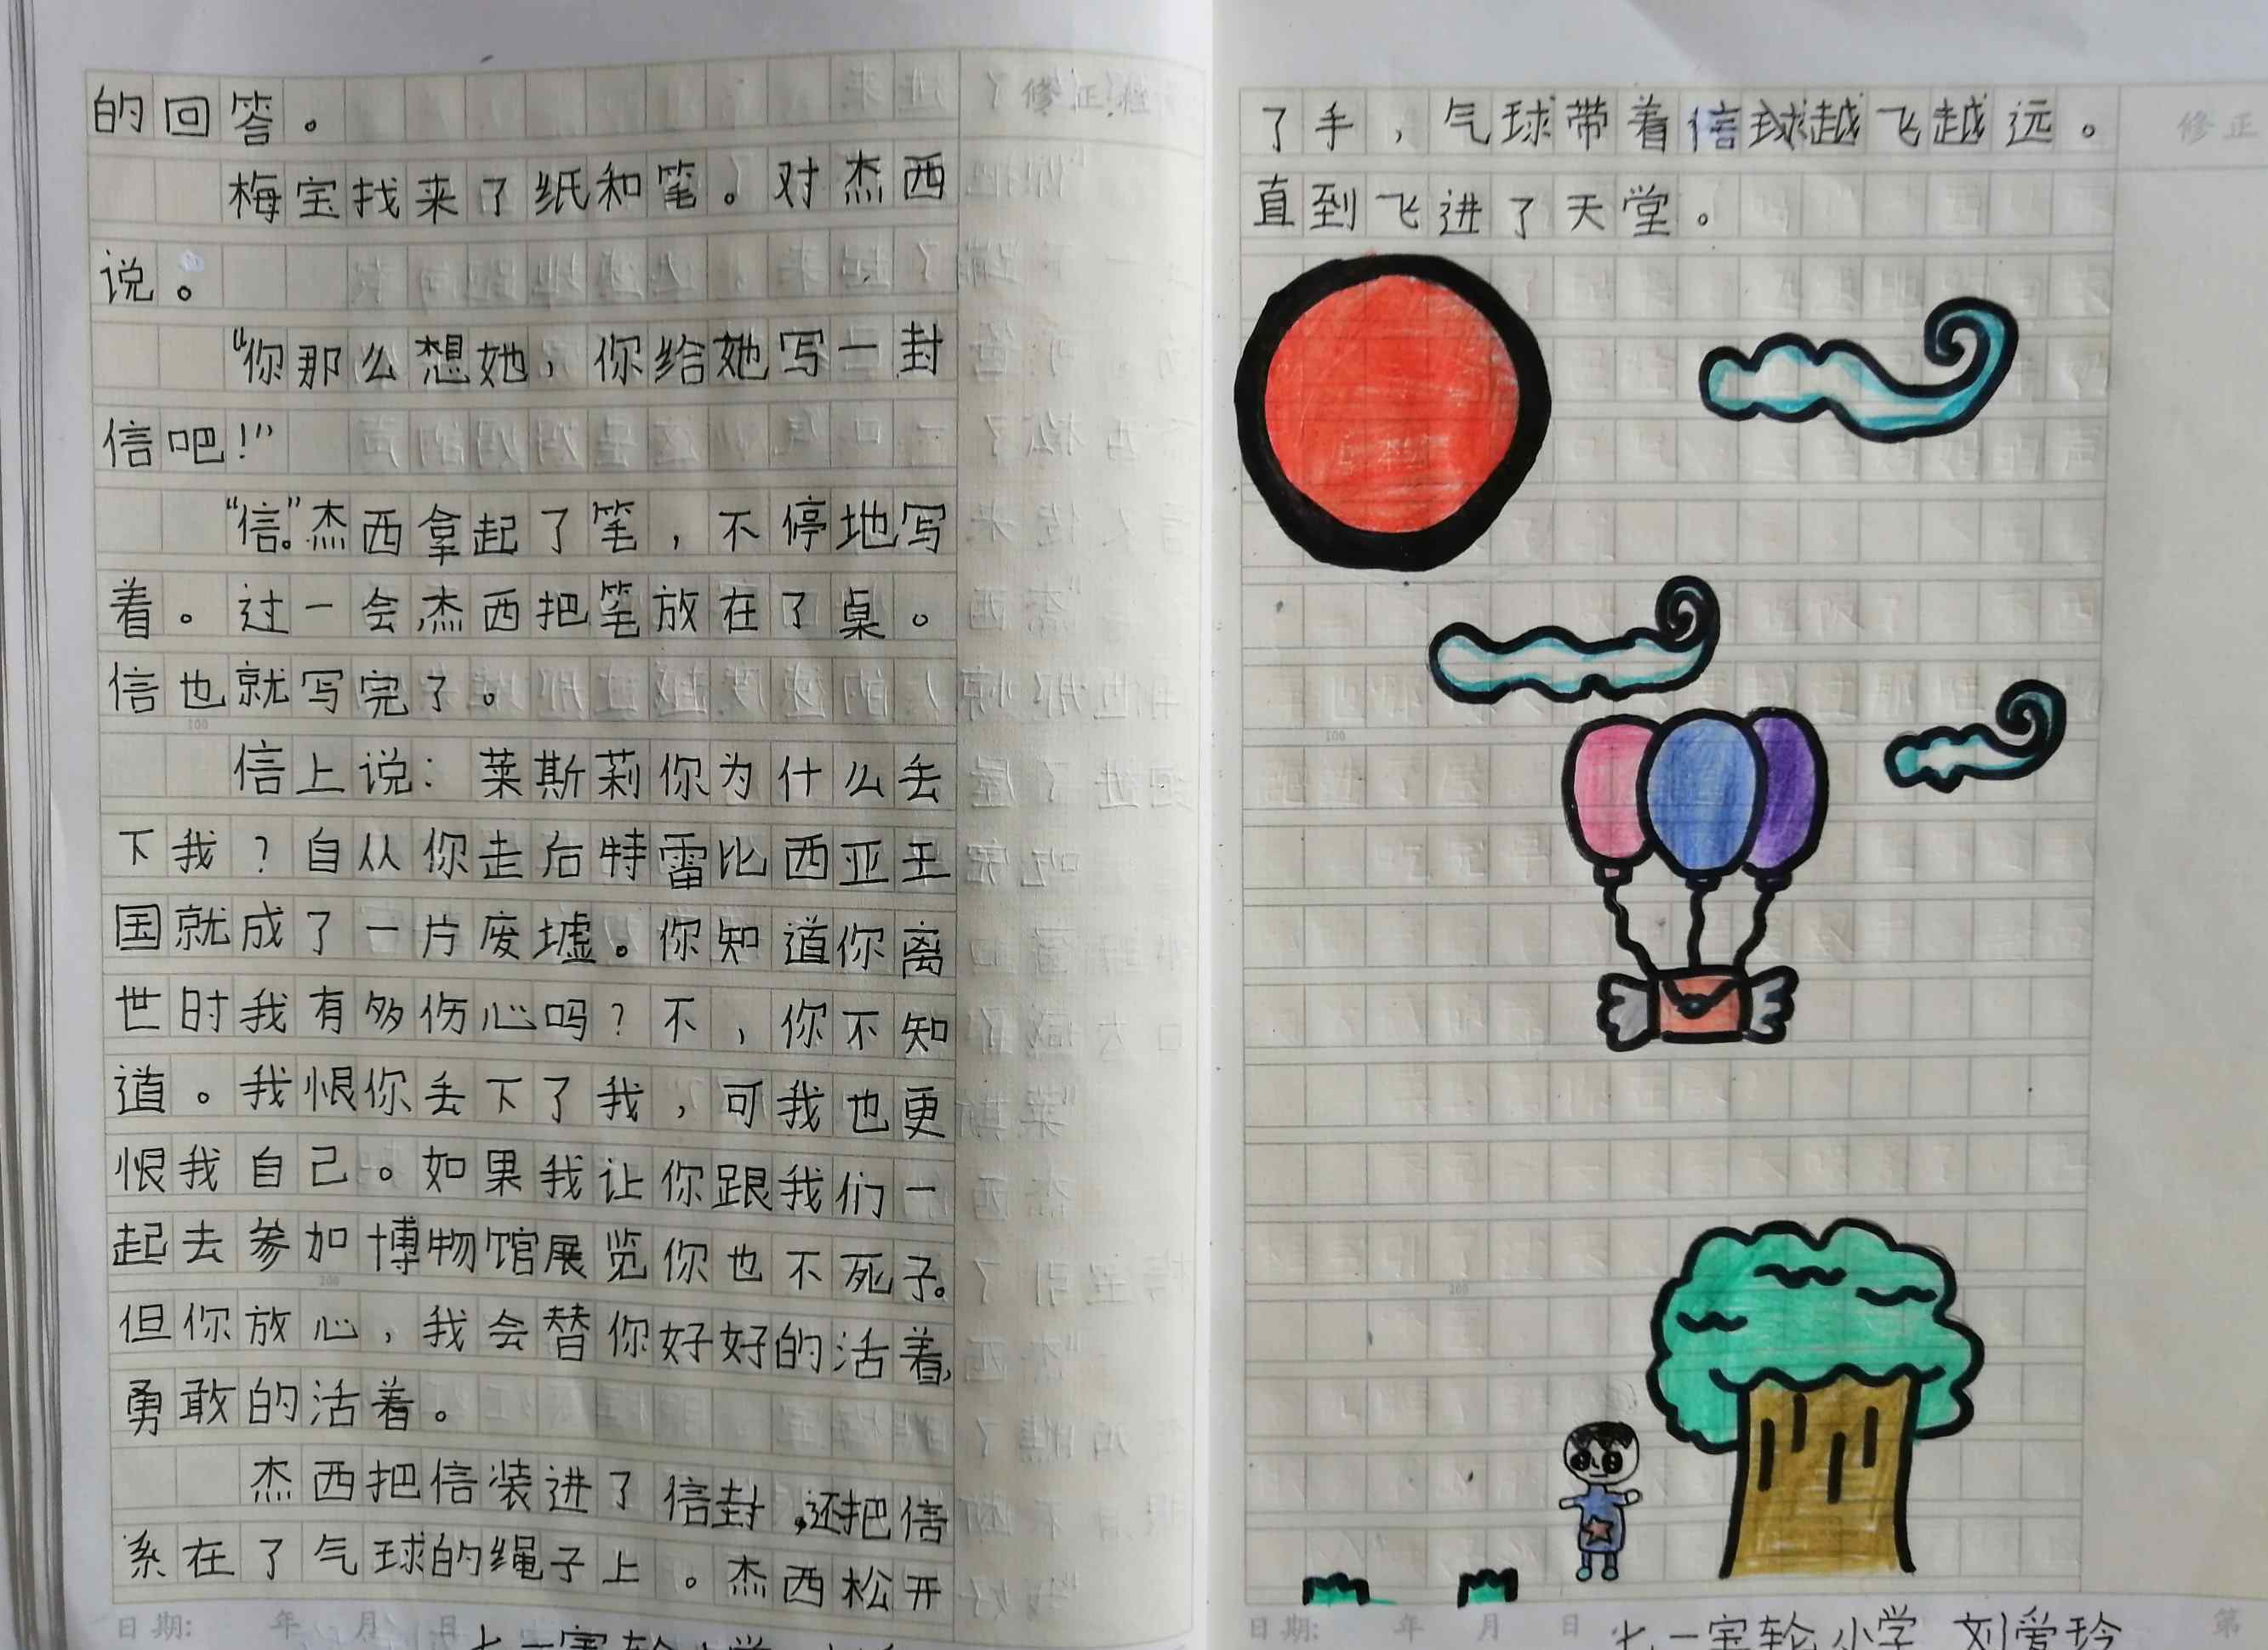 的回答。
梅宝找来了纸和笔。对杰西
说。
“你那么想她，你给她写一封
信吧！”
“信。”杰西拿起了笔，不停地写
着。过一会杰西把笔放在了桌。
信也就写完了。
100
信上说：莱斯莉你为什么丢
下我？自从你走后特雷比西亚王
国就成了一片废墟。你知道你离
世时我有多伤心吗？不，你不知
道。我恨你丢下了我，可我也更
恨我自己。如果我让你跟我们一
起去参加博物馆展览你也不死子。
200
但你放心，我会替你好好的活着，
勇敢的活着。
杰西把信装进了信封，还把信
系在了气球的绳子上。杰西松开
日期： 年 月 日
修正栏
了手，气球带着信球越飞越远。
直到飞进了天堂。
修正
100
200
日期： 年 月 日
七一宝轮小学 刘爱玲
第